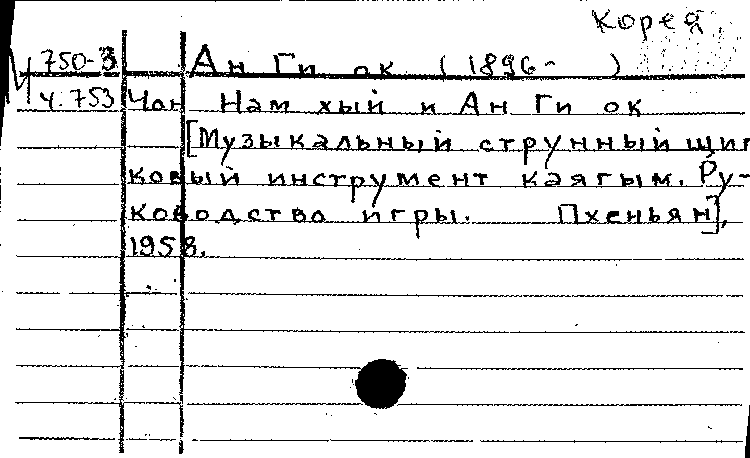 Корея
750-3 Ан Ги ок (1896- )
Ч.753 Чан Нам хый и Ан Ги ок
[Музыкальный струнный щип
ковый инструмент каягым. Ру-
ководство игры. Пхеньян],
1958.